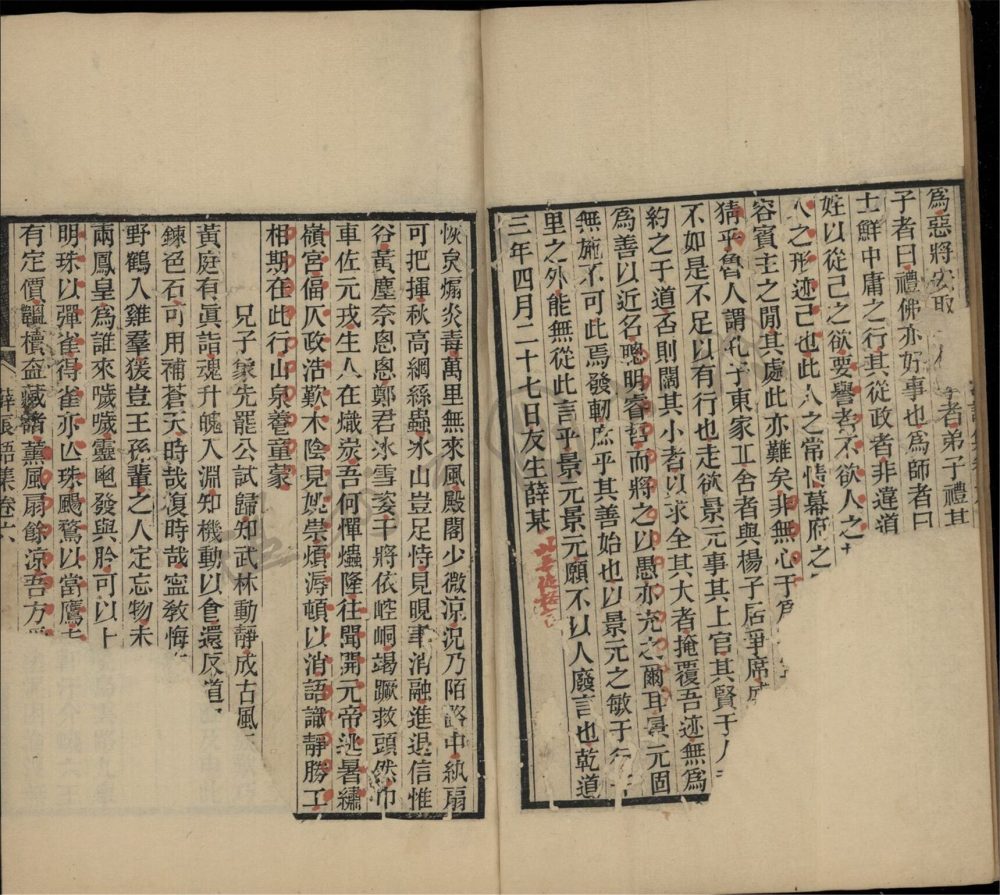 為惡將
子者曰禮佛亦好事也為師者曰
者弟子禮甚
士鮮中庸之行其從政者非違道
姓以從己之欲要譽者不欲人之
人之形迹己也此人之常情幕府之
容賓主之閒其處此亦難矣非無心于
猜乎魯人謂孔子東家丘舍者與楊子居爭席
不如是不足以有行也走欲景元事其上官其賢于人
約之于道否則闊其小者以求全其大者掩覆吾迹無為
為善以近名聰明睿哲而將之以愚亦充之爾耳景元固
無施不可此焉發軔庶乎其善始也以景元之敏于行
里之外能無從此言乎景元景元願不以人廢言也乾道
三年四月二十七日友生薛某
惔炱煽炎毒萬里無來風殿閣少微涼況乃陌路中紈扇
可把揮秋高綱絲蟲冰山豈足恃見晛聿消融進退信惟
谷黃塵奈悤悤鄭君冰雪姿干將依崆峒竭蹶救頭然巾
車佐元戎生人在熾炭吾何憚蟲隆往聞開元帝逃暑繡
嶺宮偪仄政浩歎木陰見媿崇煩溽頓以消語識靜勝工
相期在此行山泉養童蒙
兄子象先罷公試歸知武林動靜成古風
黃庭有真詣魂升魄入淵知機動以會還反道
鍊色石可用補蒼天時哉復時哉寍敎悔
野鶴入雞羣猨豈王孫輩之人定忘物未
兩鳳皇為誰來噦噦靈圖發與肣可以卜
明珠以彈雀得雀亦亾珠颺鶩以當鷹
有定價韞櫝盍藏諸薰風扇餘涼吾方
薛浪語集卷六